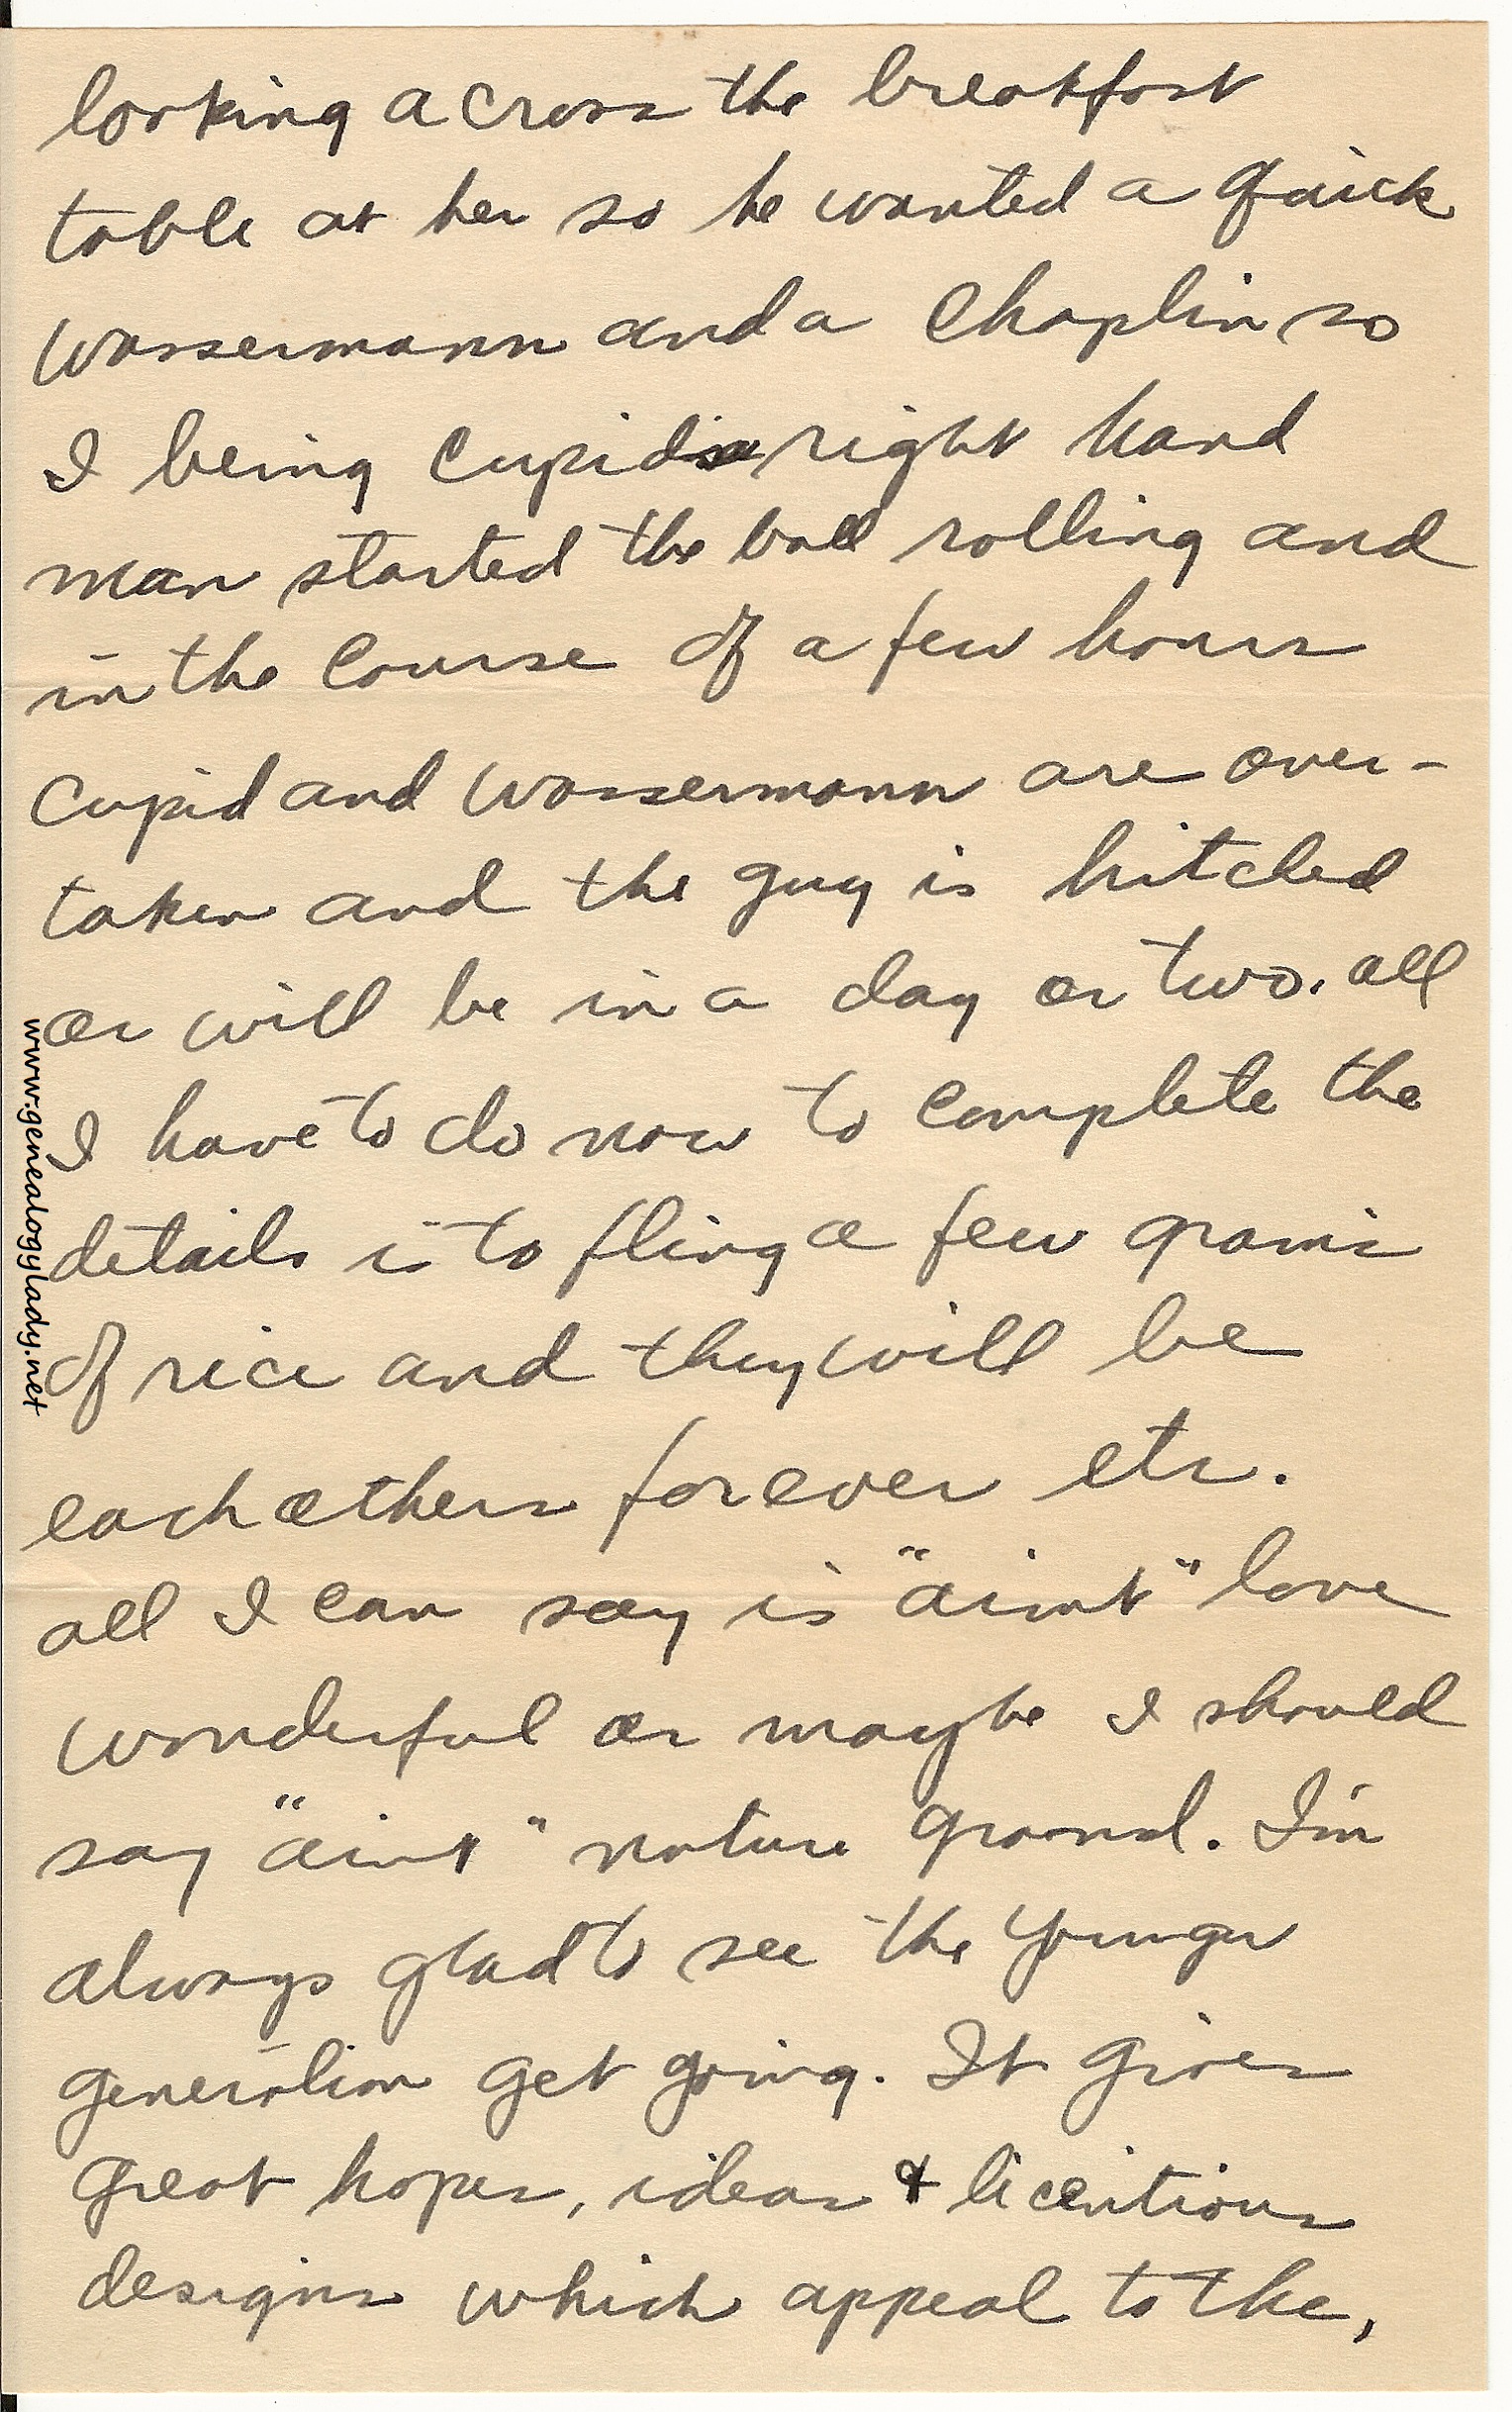 looking across the breakfast
table at her so he wanted a quick
Wassermann and a Chaplin so
I being Cupids right hand
man started the ball rolling and
in the course of a few hours
Cupid and Wassermann are over-
taken and the guy is hitched
or will be in a day or two. all
I have to do now to complete the
details is to fling a few grains
of rice and they will be
each others forever etc.
all I can say is "aint" love
wonderful or maybe I should
say "aint" nature grand. I'm
always glad to see the younger
generation get going. It gives
great hopes, ideas & licentious
designs which appeal to the,
www.genealogylady.net